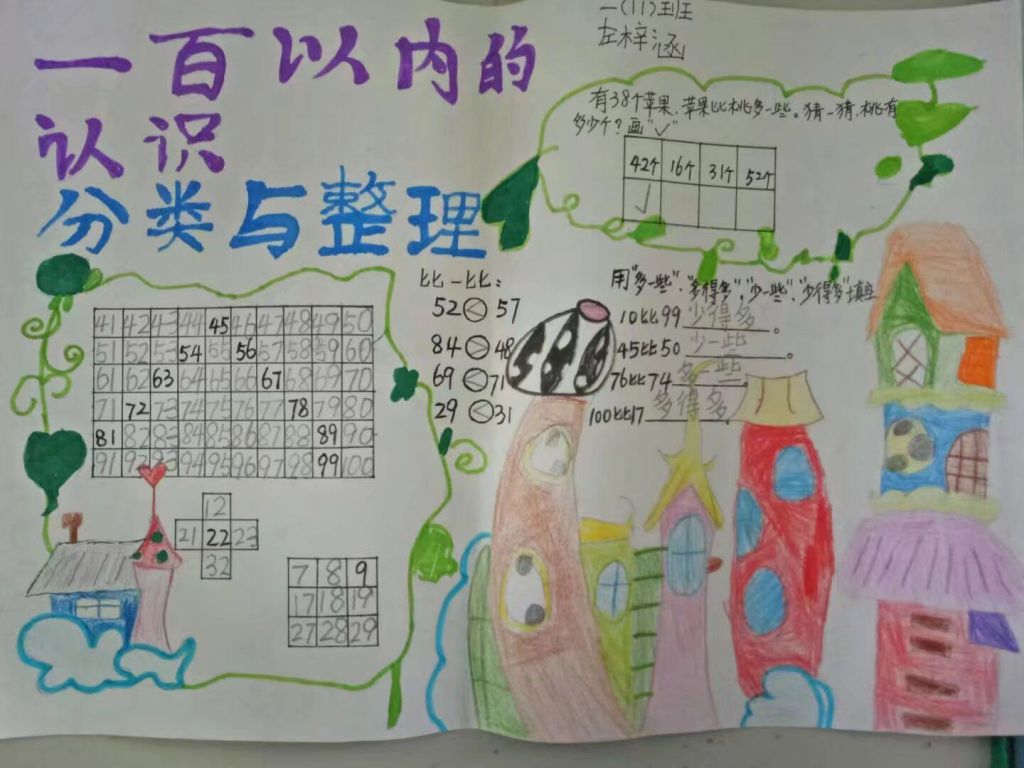 一百以内的
认识
分类与整理
一(11)班
左梓涵
有38个苹果,苹果比桃多一些。猜一猜,桃有
多少个?画"✓"
42个 16个 31个 52个
✓
41 42 43 44 45 46 47 48 49 50
51 52 53 54 55 56 57 58 59 60
61 62 63 64 65 66 67 68 69 70
71 72 73 74 75 76 77 78 79 80
81 82 83 84 85 86 87 88 89 90
91 92 93 94 95 96 97 98 99 100
12
21 22 23
32
7 8 9
17 18 19
27 28 29
比一比:
52 < 57
84 > 48
69 < 71
29 < 31
用"多一些"、"多得多"、"少一些"、"少得多"填空
10比99 少得多。
45比50 少一些。
76比74 多一些。
100比17 多得多.